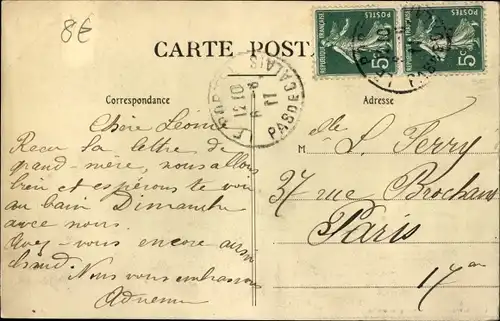 8€
CARTE POST
REPUBLIQUE FRANÇAISE
POSTES
5c
REPUBLIQUE FRANÇAISE
POSTES
5c
PAS DE CALAIS
12 10
8
11
Correspondance
Adresse
Chère Léonie
Reçu la lettre de
grand-mère, nous allons
bien et espérons te voir
au bain Dimanche
avec nous.
Avez-vous encore aussi
chaud. Nous vous embrassons
Adrienne
M lle L. Ferry
37 rue Brochant
Paris
17 em